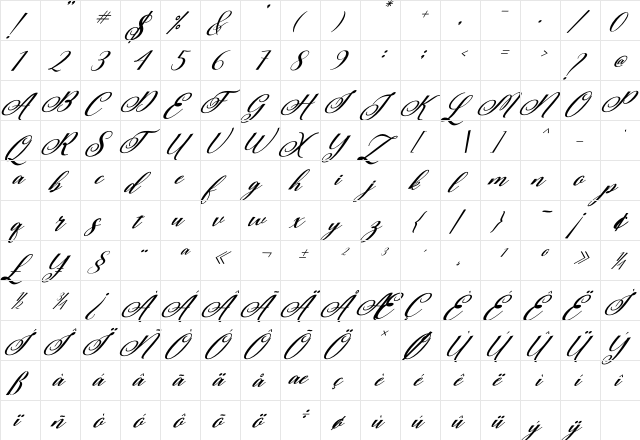 ! " # $ % & ' ( ) * + , - . / 0
1 2 3 4 5 6 7 8 9 : ; < = > ? @
A B C D E F G H I J K L M N O P
Q R S T U V W X Y Z [ \ ] ^ _ `
a b c d e f g h i j k l m n o p
q r s t u v w x y z { | } ~ ¡ ¢
£ ¥ § ¨ ª « ¬ ± ² ³ ´ ¸ ¹ º » ¼
½ ¾ ¿ À Á Â Ã Ä Å Æ Ç È É Ê Ë Ì
Í Î Ï Ñ Ò Ó Ô Õ Ö × Ø Ù Ú Û Ü Ý
ß à á â ã ä å æ ç è é ê ë ì í î
ï ñ ò ó ô õ ö ÷ ø ù ú û ü ý ÿ